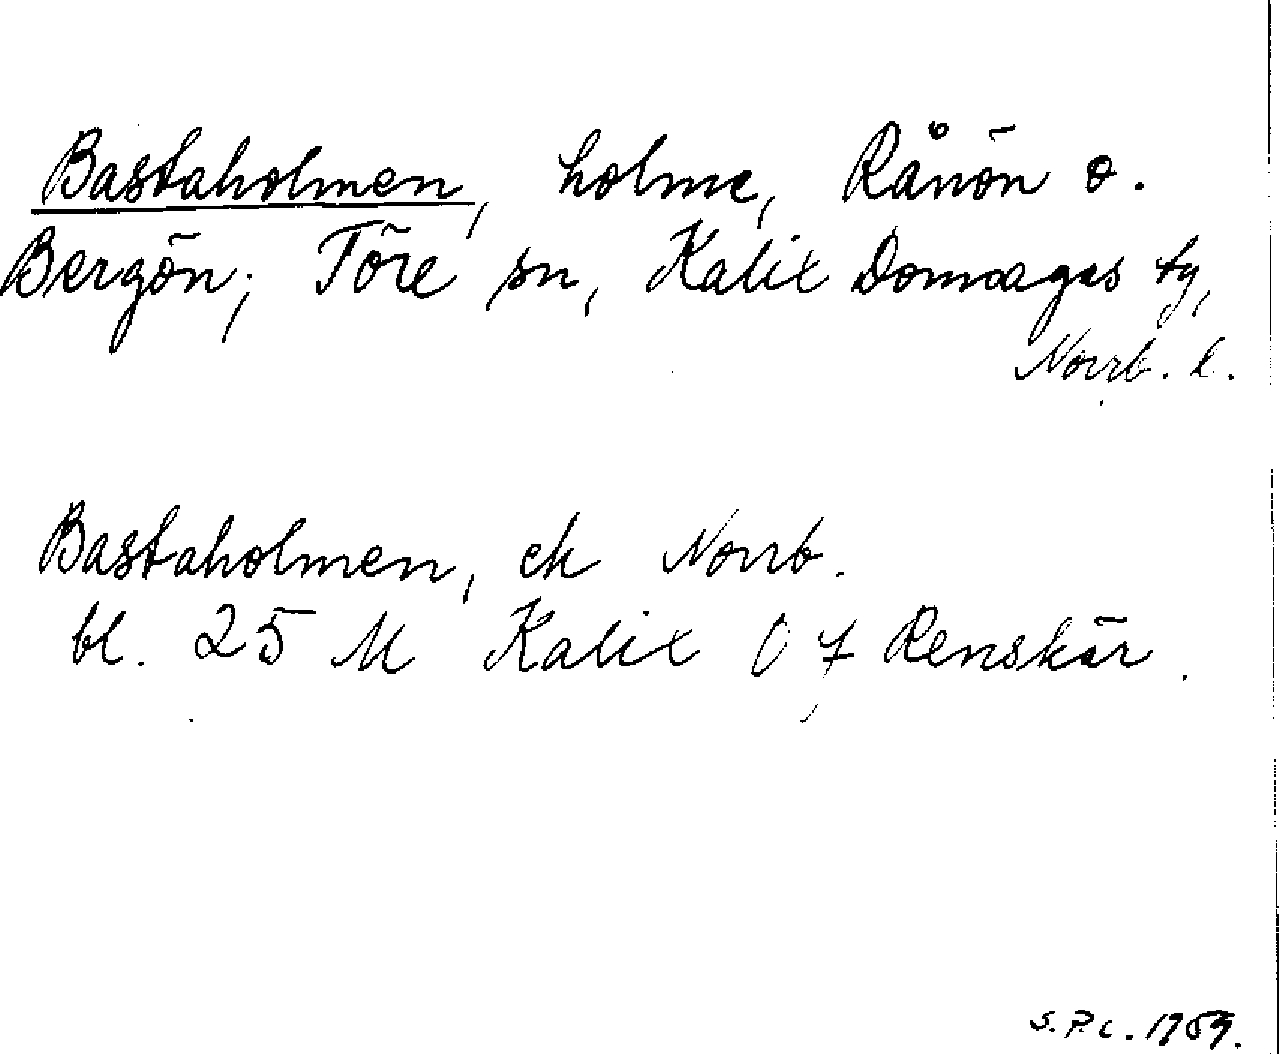 Bastaholmen, holme, Rånön o.
Bergön; Töre sn, Kalix Domsagas tg,
Norrb. l.
Bastaholmen, ek Norrb.
bl. 25 M Kalix O f Renskär.
S.P.C. 1959.